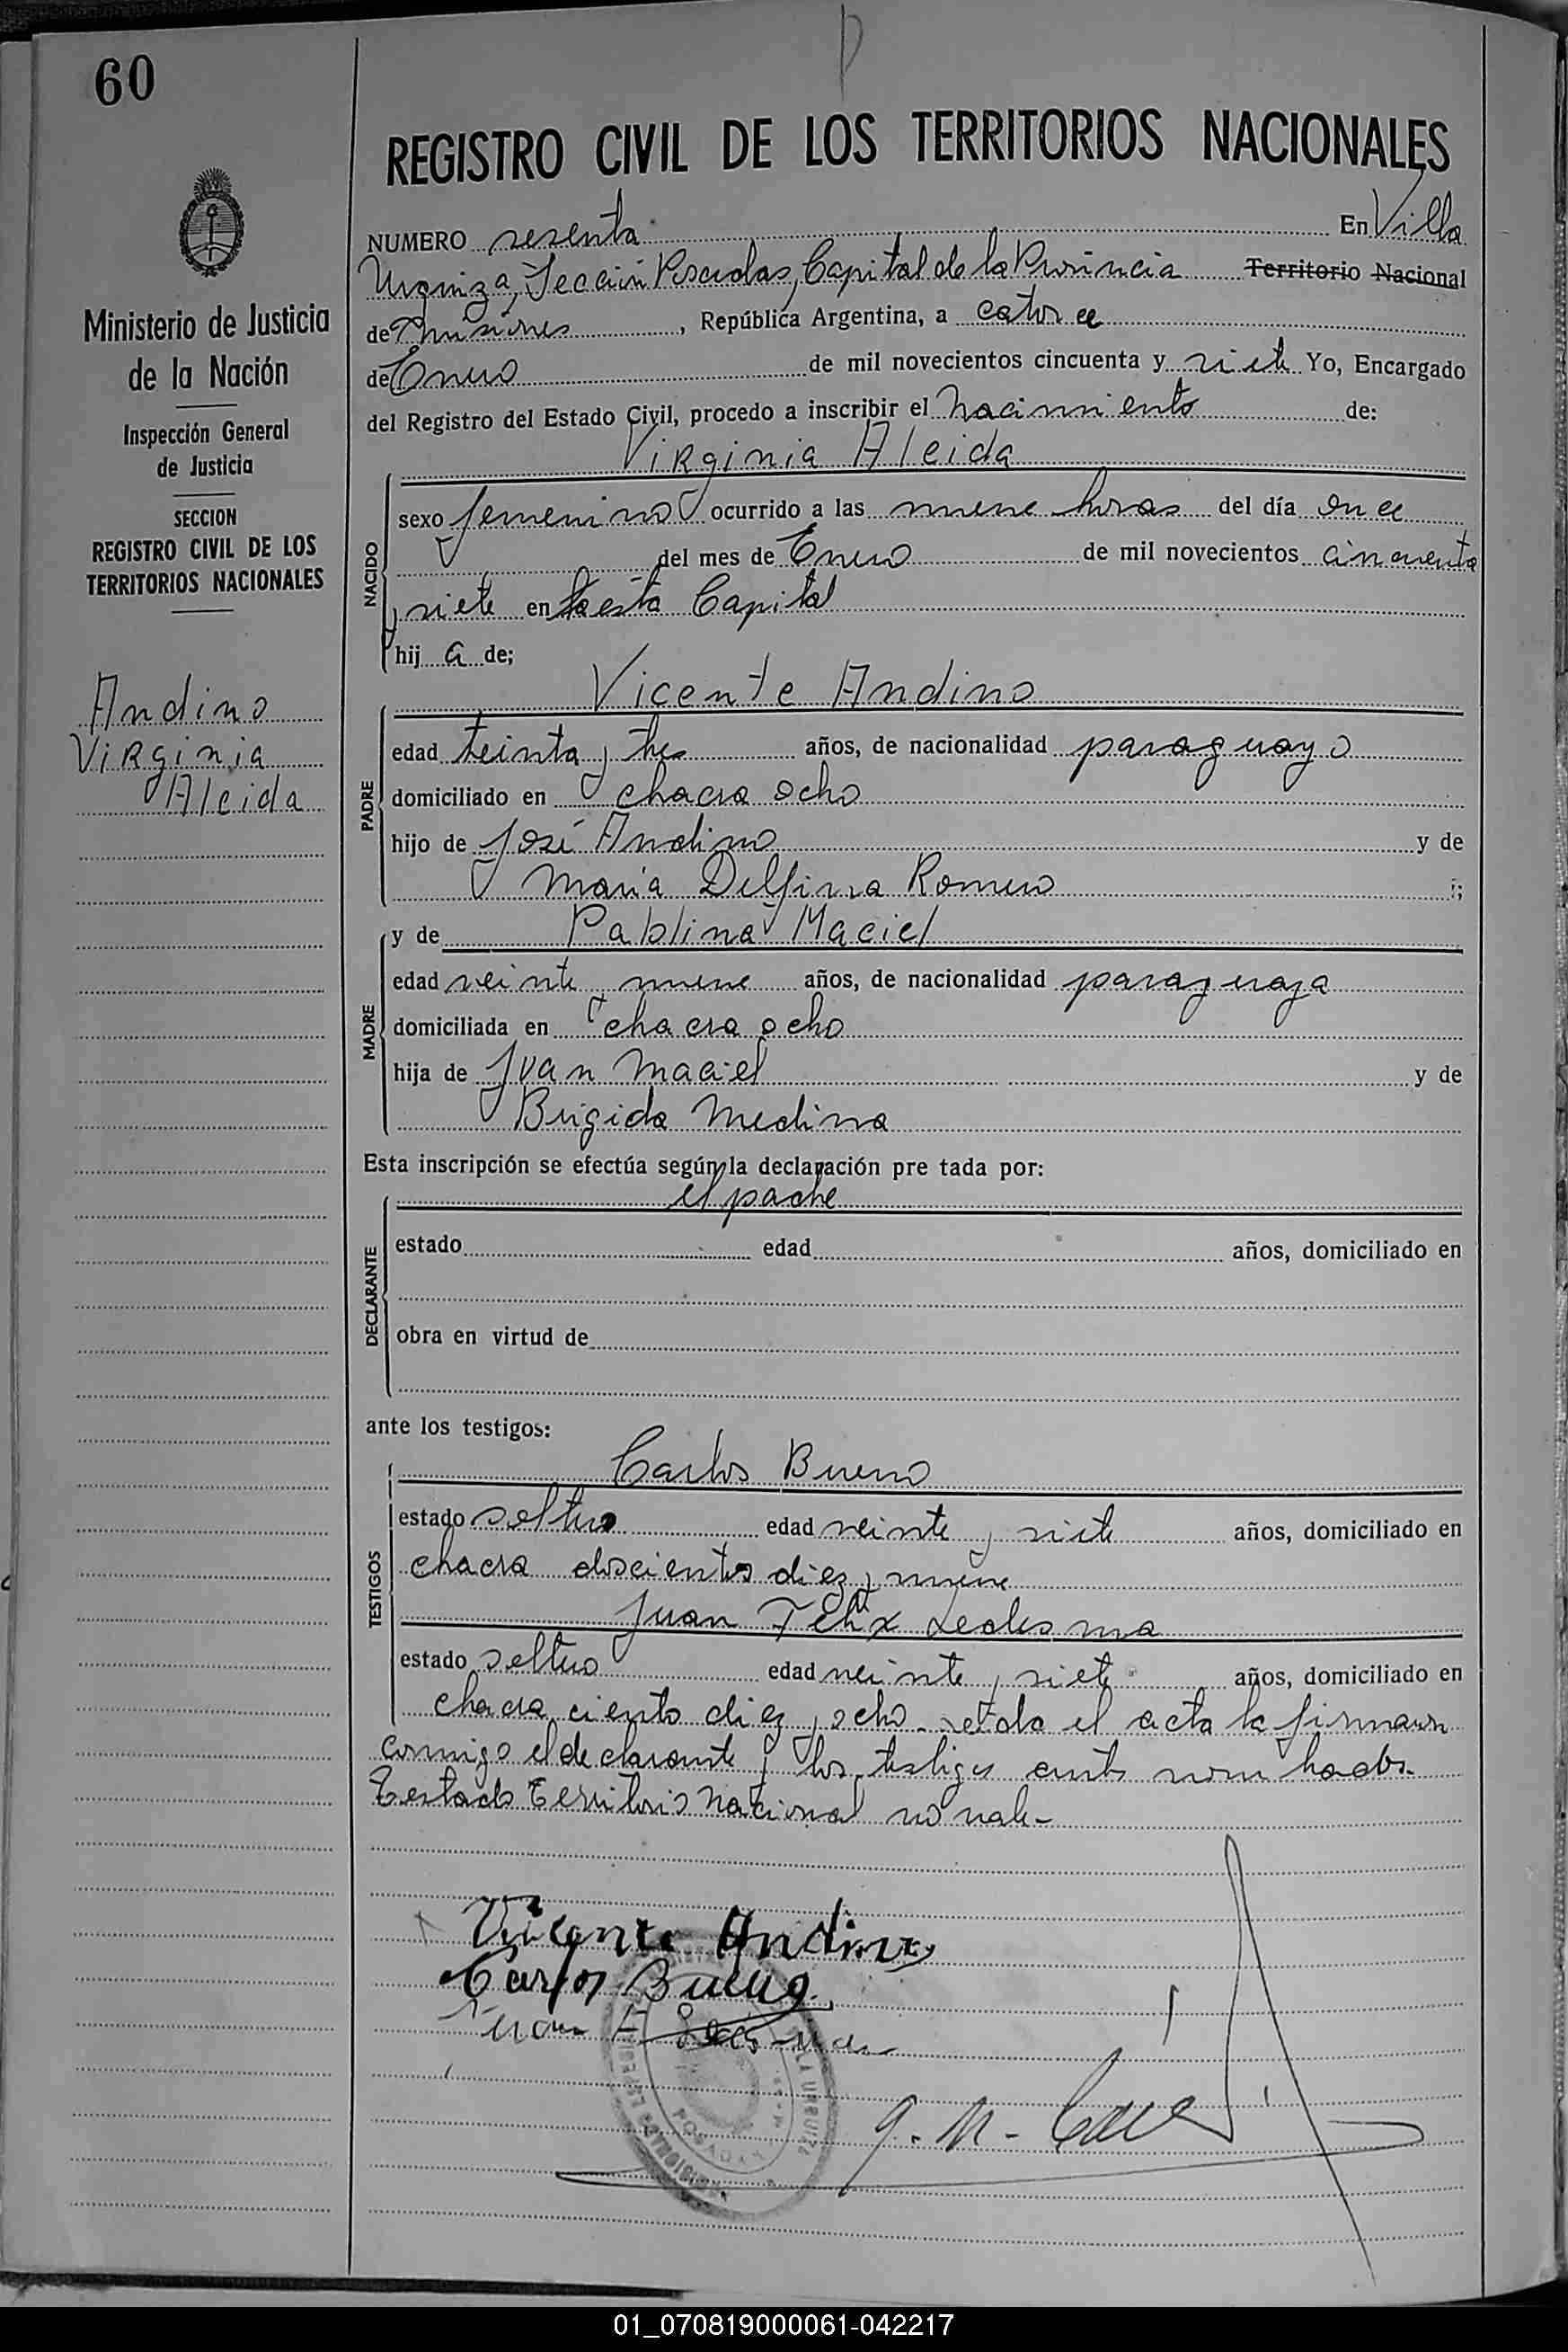 60
REGISTRO CIVIL DE LOS TERRITORIOS NACIONALES
NUMERO sesenta En Villa
Urquiza, Sección Posadas, Capital de la Provincia Territorio Nacional
de Misiones, República Argentina, a catorce
de Enero de mil novecientos cincuenta y siete Yo, Encargado
del Registro del Estado Civil, procedo a inscribir el nacimiento de:
Virginia Aleida
NACIDO
sexo femenino ocurrido a las nueve horas del día once
del mes de Enero de mil novecientos cincuenta
y siete en esta Capital
hij a de;
Vicente Andino
PADRE
edad treinta y tres años, de nacionalidad paraguayo
domiciliado en chacra ocho
hijo de José Andino y de
María Delfina Romero
MADRE
y de Pablina Maciel
edad veinte y nueve años, de nacionalidad paraguaya
domiciliada en chacra ocho
hija de Juan Maciel y de
Brigida Medina
Esta inscripción se efectúa según la declaración pre tada por:
el padre
DECLARANTE
estado edad años, domiciliado en
obra en virtud de
ante los testigos:
TESTIGOS
Carlos Bueno
estado soltero edad veinte y siete años, domiciliado en
chacra doscientos diez y nueve
Juan Felix Ledesma
estado soltero edad veinte y siete años, domiciliado en
chacra ciento diez y ocho. Leída el acta la firmaron
conmigo el declarante y los testigos ante nombrados.
Testado Territorio Nacional no vale-
Vicente Andino
Carlos Bueno
Juan F Ledesma
POSADAS
Ministerio de Justicia
de la Nación
Inspección General
de Justicia
SECCION
REGISTRO CIVIL DE LOS
TERRITORIOS NACIONALES
Andino
Virginia
Aleida
01_070819000061-042217